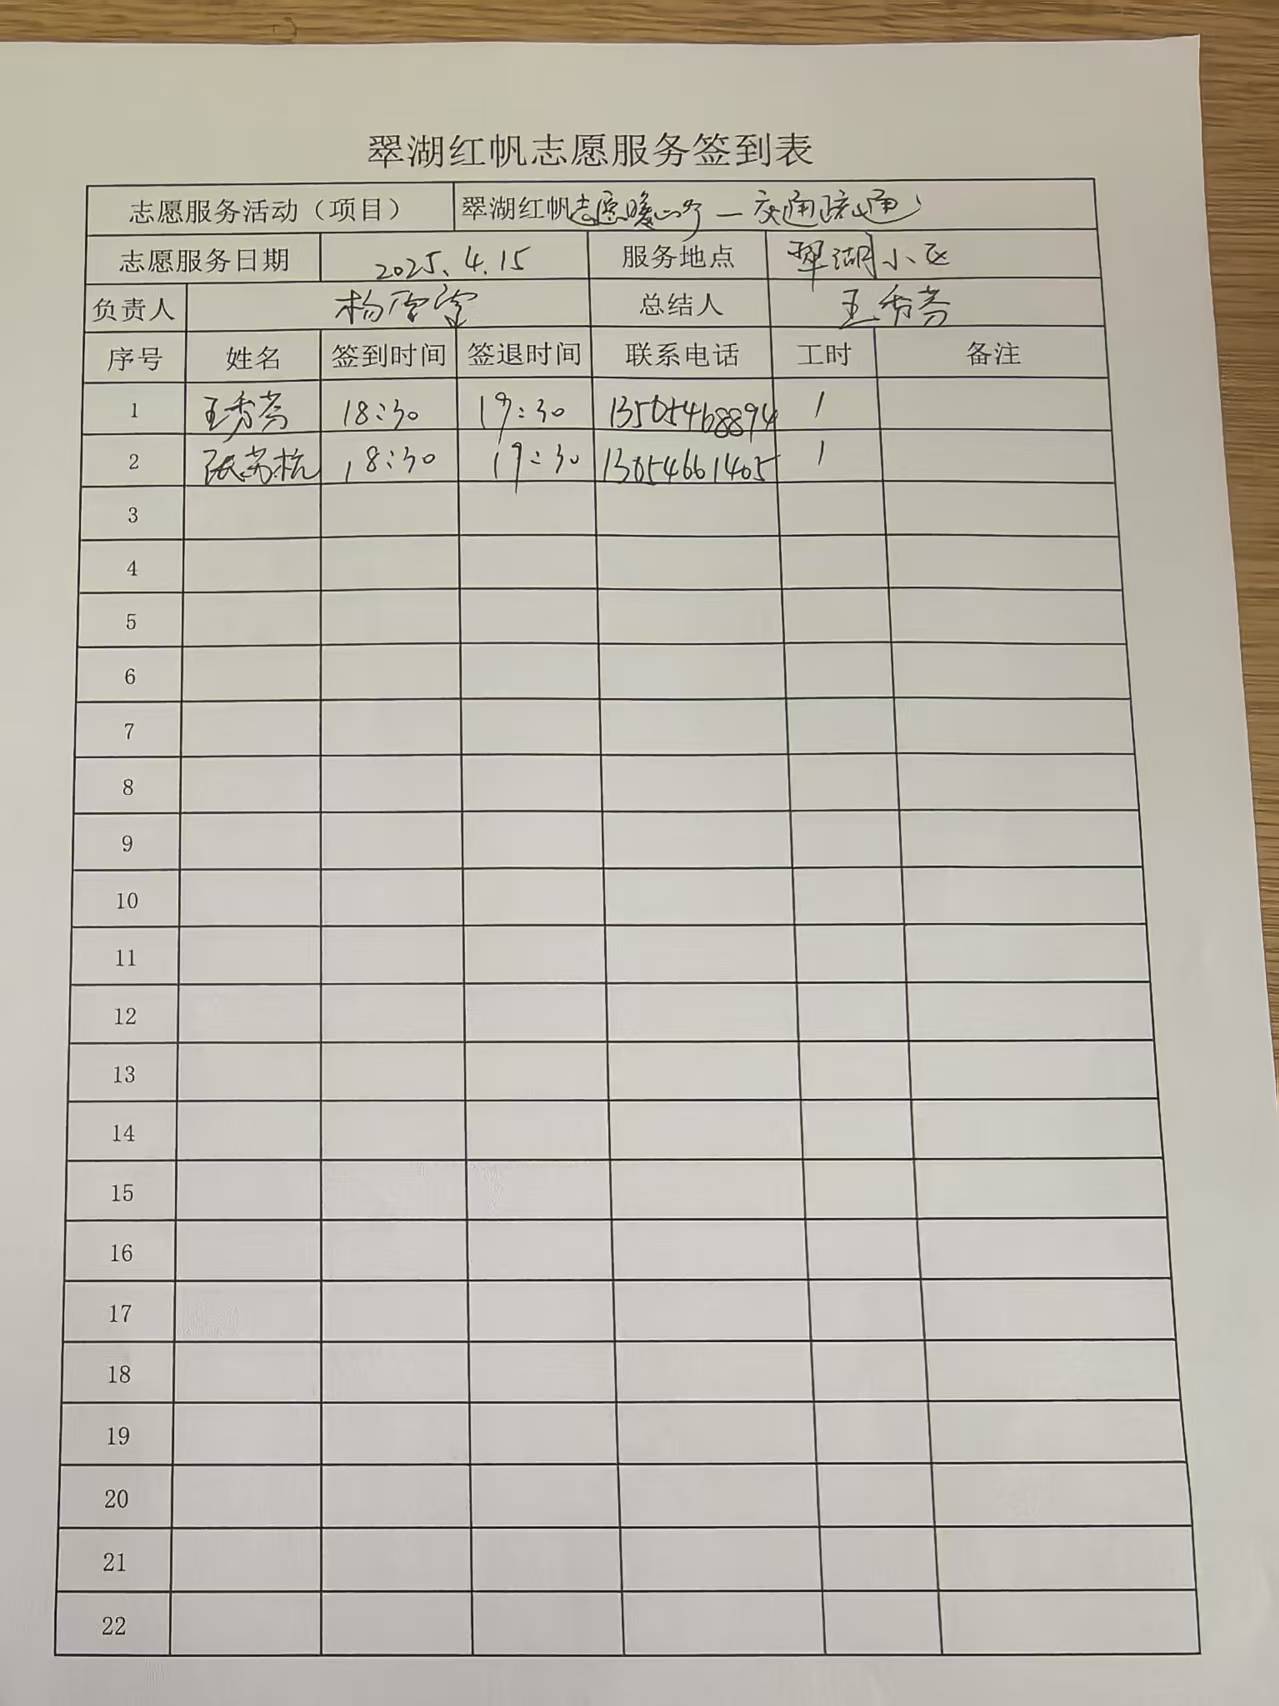 翠湖红帆志愿服务签到表
志愿服务活动（项目） 翠湖红帆志愿暖心行—交通疏通
志愿服务日期 2025.4.15 服务地点 翠湖小区
负责人 杨 总结人 王秀芬
序号 姓名 签到时间 签退时间 联系电话 工时 备注
1 王秀芬 18:30 19:30 13505468894 1
2 张 18:30 19:30 13054661405 1
3
4
5
6
7
8
9
10
11
12
13
14
15
16
17
18
19
20
21
22